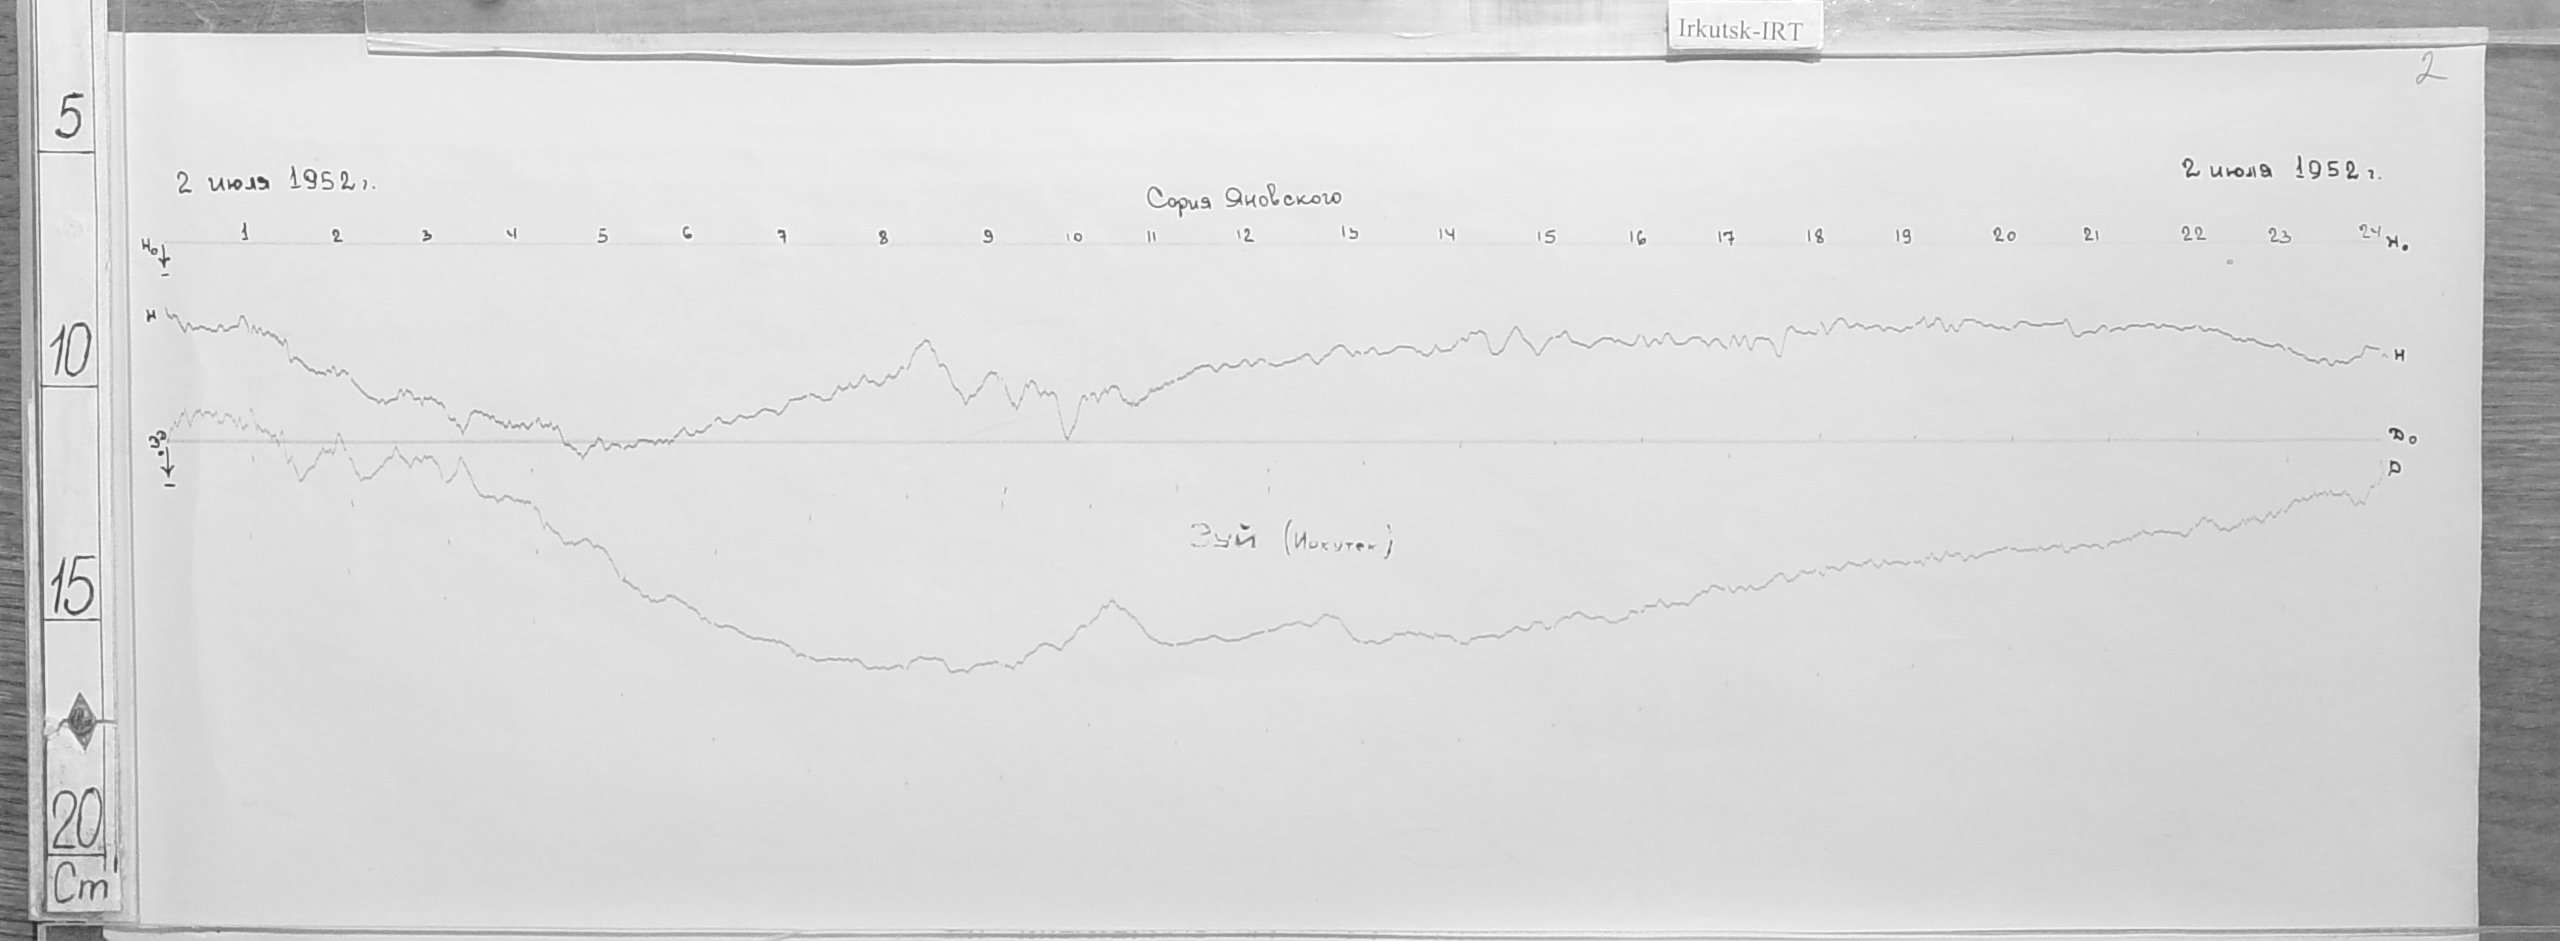 Irkutsk-IRT
2
5
10
15
20
Cm
2 июля 1952 г.
2 июля 1952 г.
Сория Яновского
1 2 3 4 5 6 7 8 9 10 11 12 13 14 15 16 17 18 19 20 21 22 23 24
H₀
H₀
H
H
D₀
D
Зуй (Иркутск)